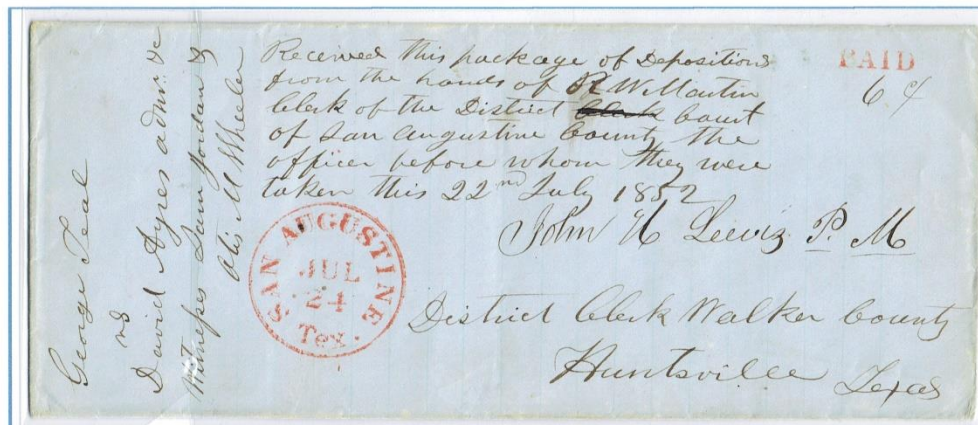 George Teal
vs
David Ayres admr. &c
Witnesses Sam Jordan &
Otis M Wheeler
Received this package of Depositions
from the hands of R W Martin
Clerk of the District Clerk Court
of San Augustine County the
officer before whom they were
taken this 22nd July 1852
John N Lewis P. M
PAID
6 cts
SAN AUGUSTINE
JUL
24
Tex.
District Clerk Walker County
Huntsville Texas